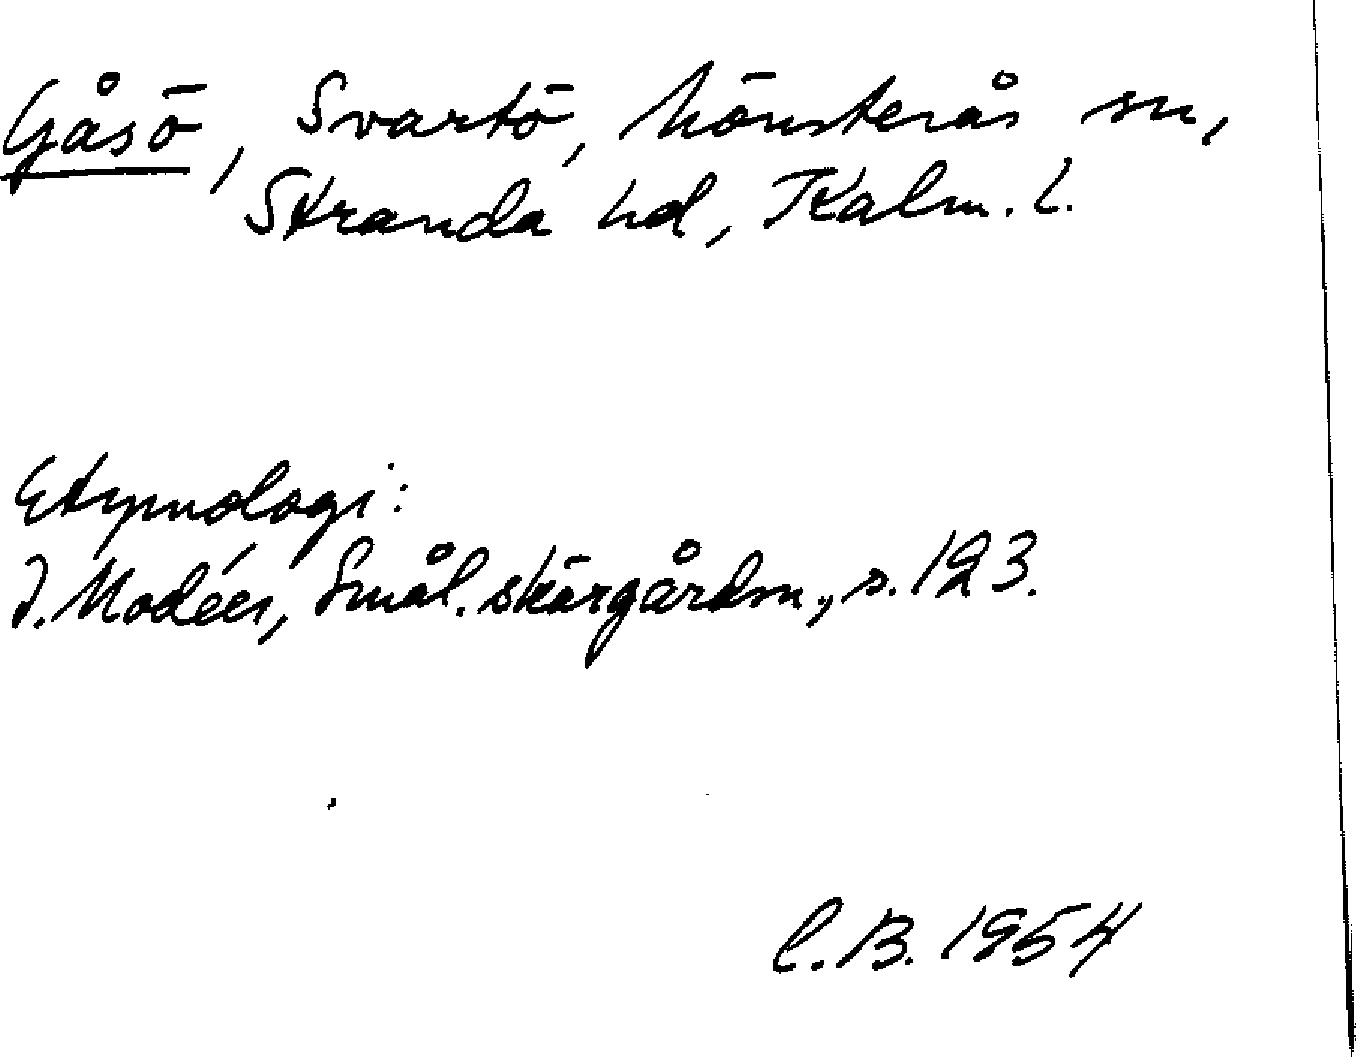 Gåsö, Svartö, Mönsterås sn,
Stranda hd, Kalm. l.
Etymologi:
I. Modéer, Smål. skärgårdsn., s. 123.
C.B. 1954